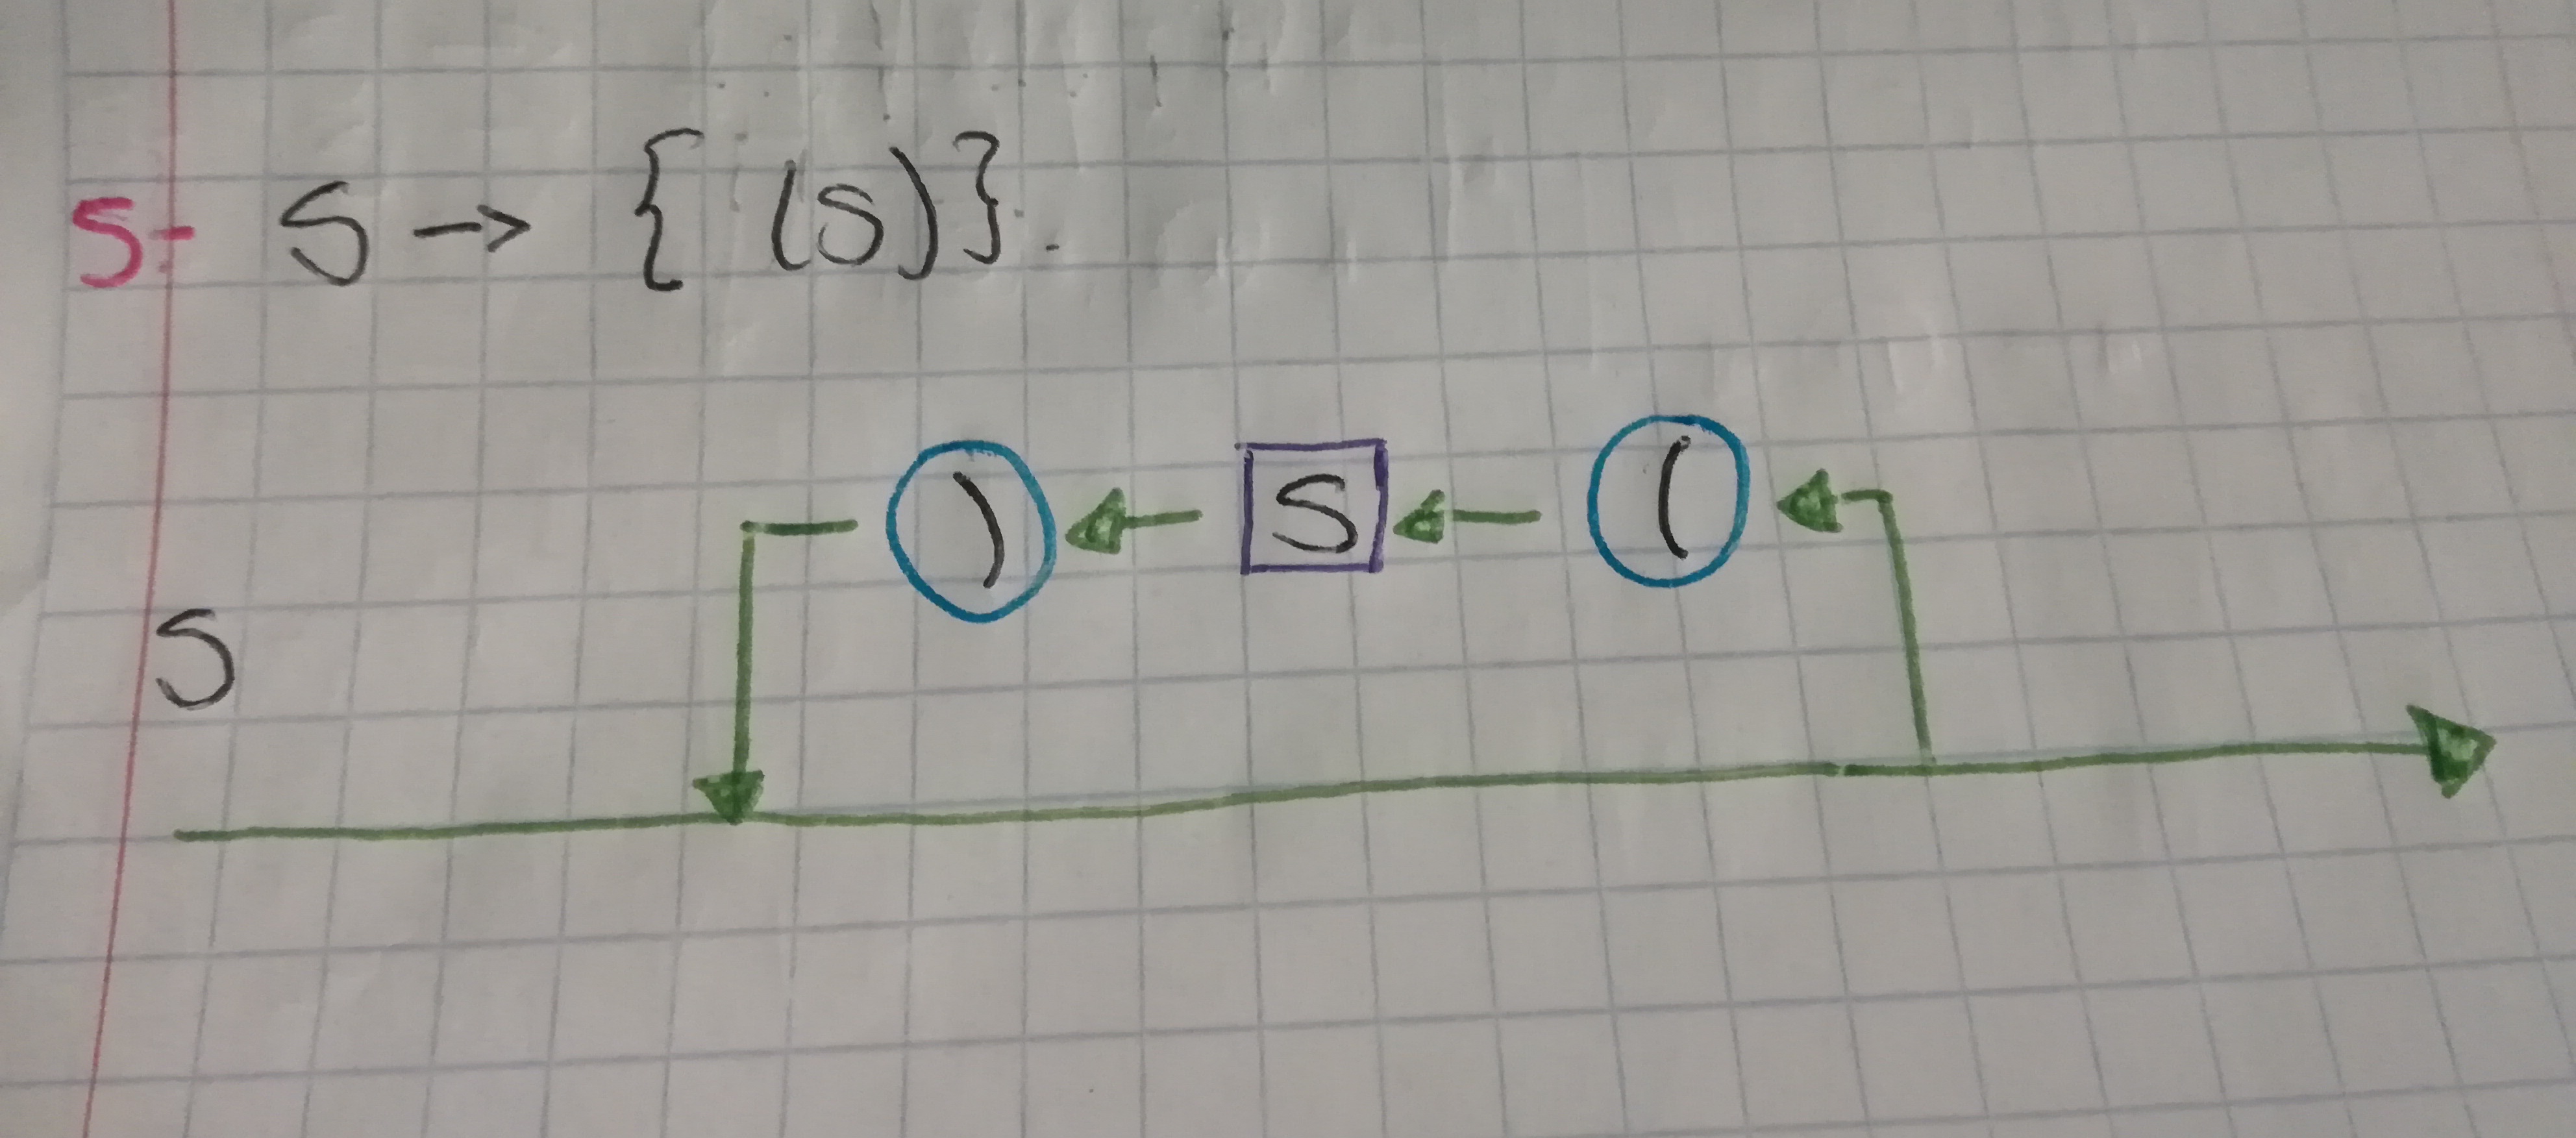 5- S → { (S) }.
) S (
S